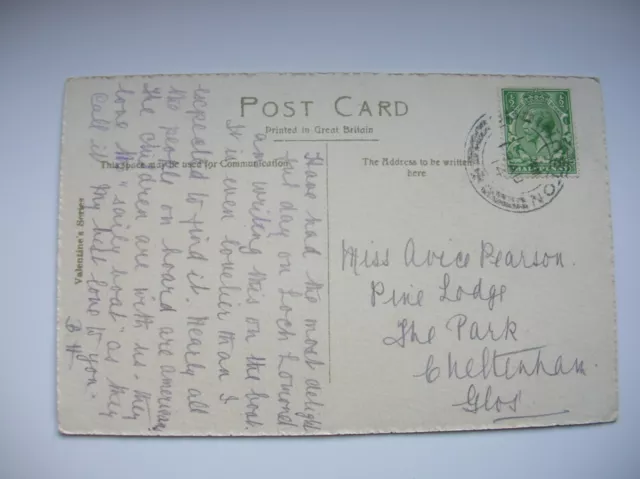 POST CARD
Printed in Great Britain
This space may be used for Communication.
The Address to be written
here
Valentine's Series
Have had the most delight
ful day on Loch Lomond
am writing this on the boat.
It is even lovelier than I
expected to find it. Nearly all
the people on board are American
The children are with us. They
love the "saily boat" as they
call it. My best love to you.
B H
Miss Avice Pearson.
Pine Lodge
The Park
Cheltenham.
Glos
HALF PENNY